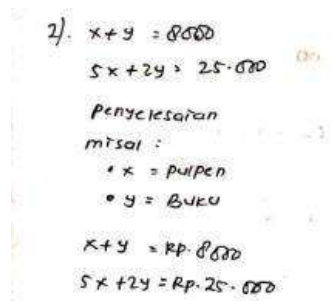 2). x+y = 8000
5x+2y = 25.000
Penyelesaian
misal :
• x = pulpen
• y = Buku
x+y = Rp. 8000
5x+2y = Rp. 25.000